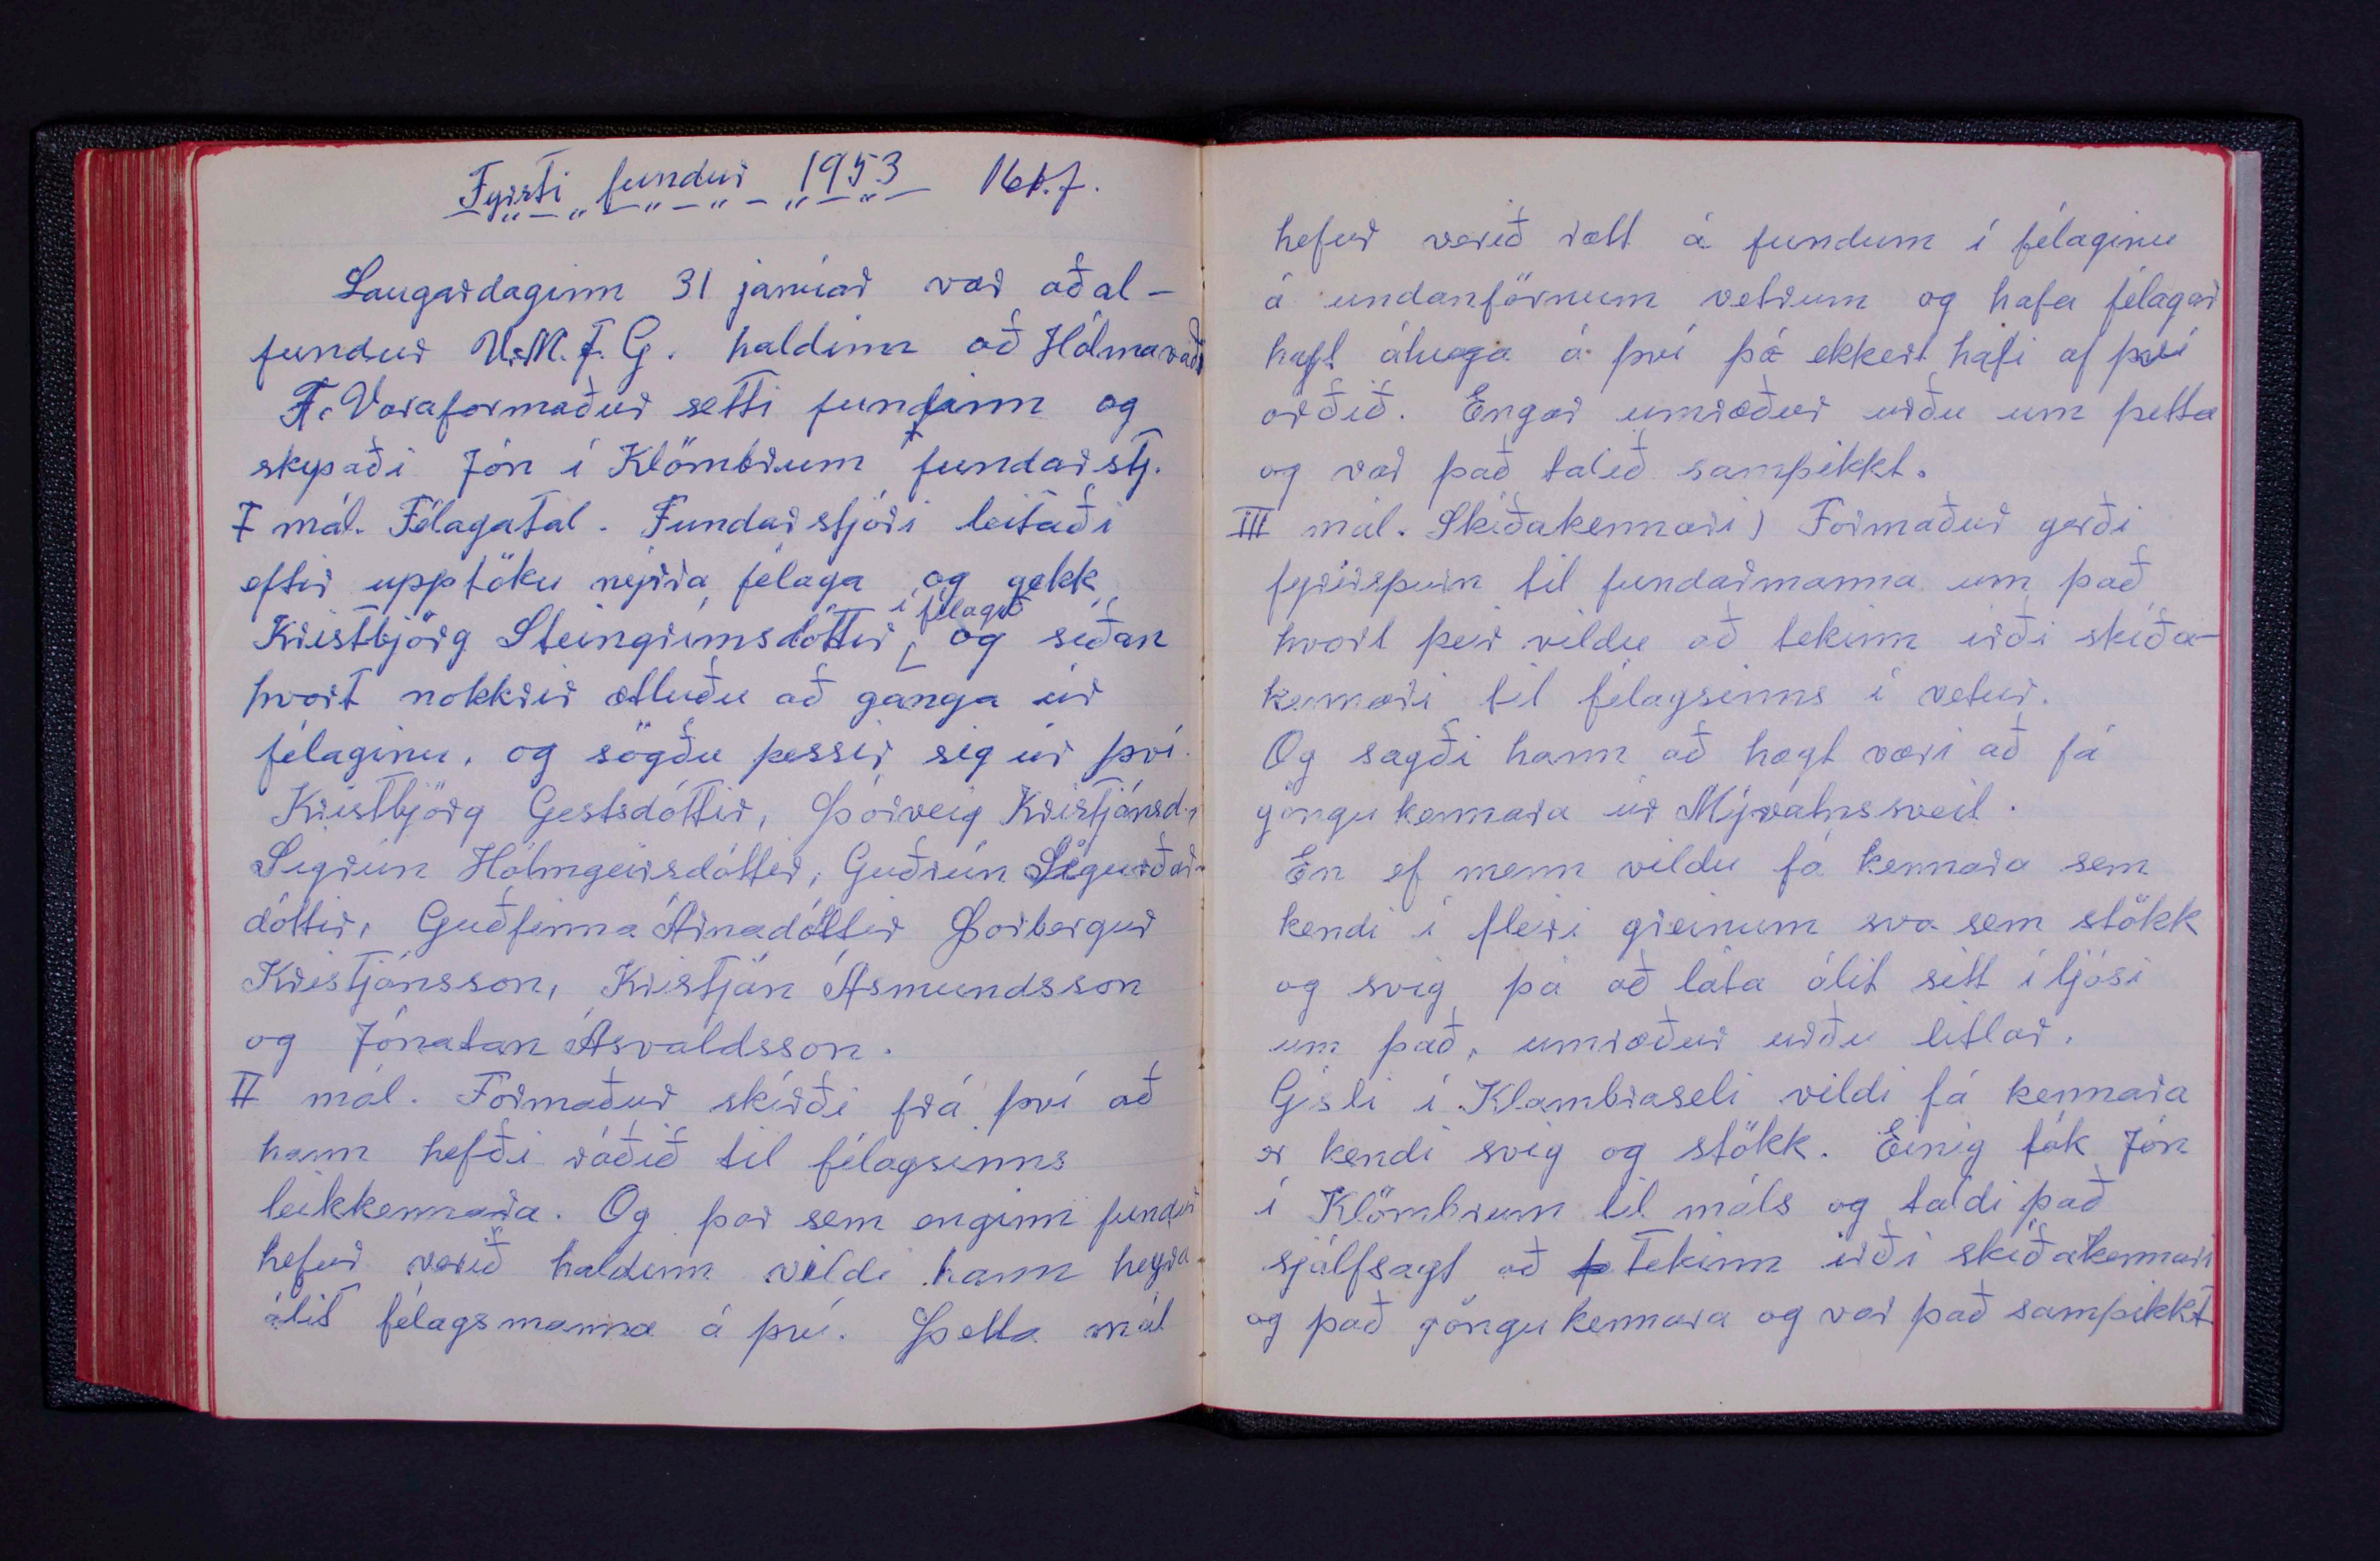 Fyrsti fundur 1953
Laugardaginn 31 janúar var aðal-
fundur U.M.F.G. haldinn að Hólmavaði
F. Varaformaður setti fundinn og
skipaði Jón í Klömbrum fundarstj.
I mál. Félagatal. Fundarstjóri leitaði
eftir upptöku nýrra félaga og gekk
í félagið
Kristbjörg Steingrímsdóttir, og síðan
hvort nokkrir ætluðu að ganga úr
félaginu, og sögðu þessir sig úr því.
Kristbjörg Gestsdóttir, Þórveig Kristjánsd.,
Sigrún Hólmgeirsdóttir, Guðrún Sigurðar-
dóttir, Guðfinna Árnadóttir Þorbergur
Kristjánsson, Kristján Ásmundsson
og Jónatan Ásvaldsson.
II mál. Formaður skírði frá því að
hann hefði ráðið til félagsinns
leikkennara. Og þar sem enginn fundur
hefur verið haldinn vildi hann heyra
álit félagsmanna á því. Þetta mál
hefur verið rætt á fundum í félaginu
á undanförnum vetrum og hafa félagar
haft áhuga á því þó ekkert hafi af því
orðið. Engar umræður urðu um þetta
og var það talið samþikkt.
III mál. Skíðakennari) Formaður gerði
fyrirspurn til fundarmanna um það
hvort þeir vildu að tekinn irði skíða-
kennari til félagsinns í vetur.
Og sagði hann að hægt væri að fá
göngukennara úr Mývatnssveit.
En ef menn vildu fá kennara sem
kendi í fleiri greinum svo sem stökk
og svig þá að láta álit sitt í ljósi
um það, umræður urðu litlar.
Gísli í Klambraseli vildi fá kennara
er kendi svig og stökk. Einig tók Jón
í Klömbrum til máls og taldi það
sjálfsagt að tekinn irði skíðakennari
og það göngukennara og var það samþikkt